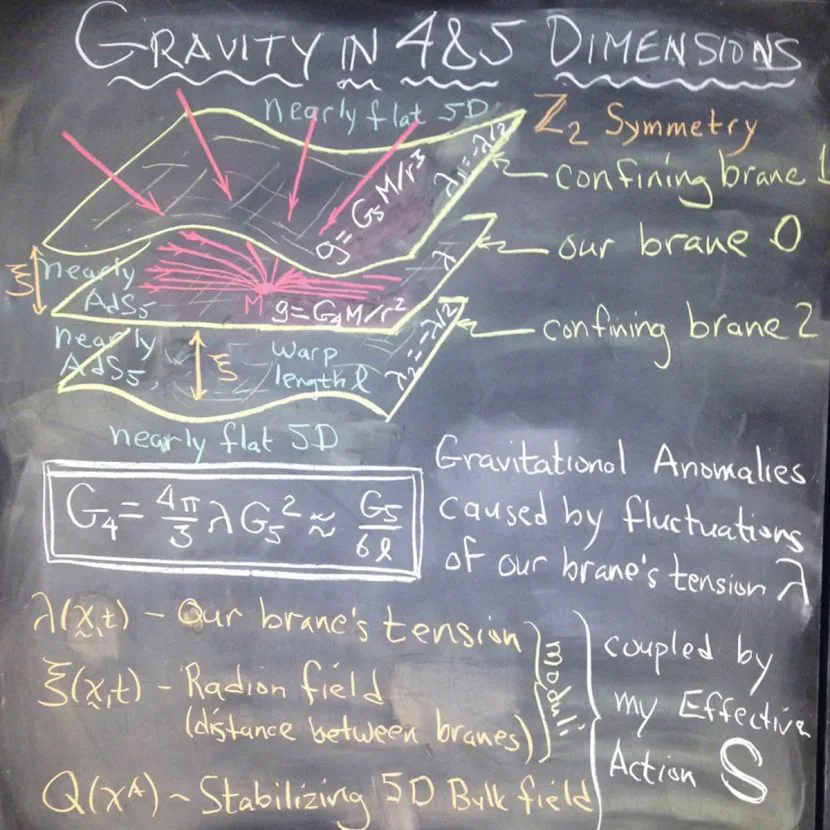 GRAVITY IN 4&5 DIMENSIONS
nearly flat 5D
Z₂ Symmetry
λ₁=-λ/2
confining brane 1
g=G₅M/r³
our brane 0
λ
ξ
nearly
AdS₅
M
g=G₄M/r²
confining brane 2
nearly
AdS₅
ξ
warp
length ℓ
λ₂=-λ/2
nearly flat 5D
G₄ = 4π/3 λ G₅² ≈ G₅/6ℓ
Gravitational Anomalies
caused by fluctuations
of our brane's tension λ
λ(x,t) - Our brane's tension
ξ(x,t) - Radion field
(distance between branes)
moduli
Q(xᴬ) ~ Stabilizing 5D Bulk field
coupled by
my Effective
Action S